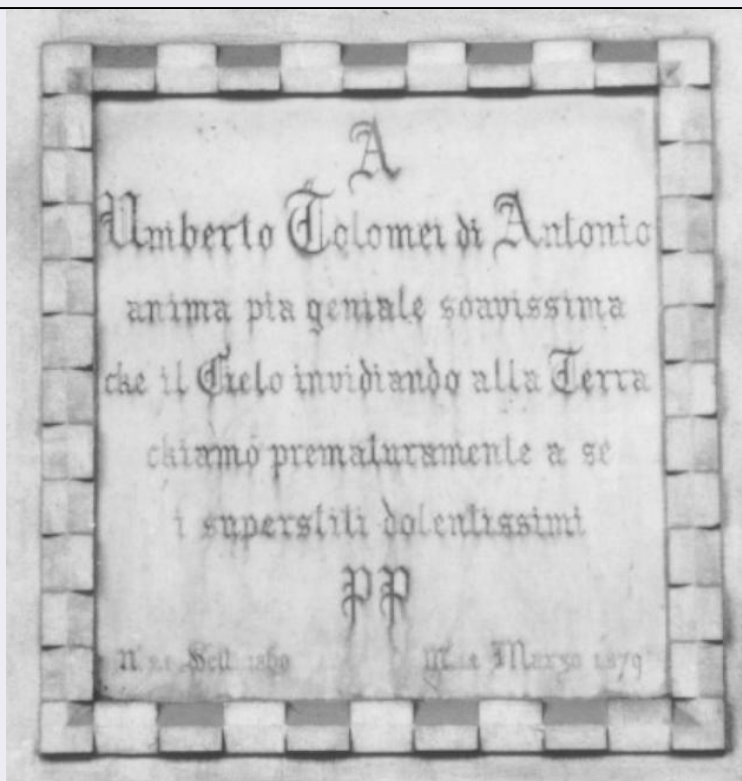 A
Umberto Tolomei di Antonio
anima pia geniale soavissima
che il Cielo invidiando alla Terra
chiamò prematuramente a se
i superstiti dolentissimi
PP
N. Sett. 1860 M. Marzo 1879